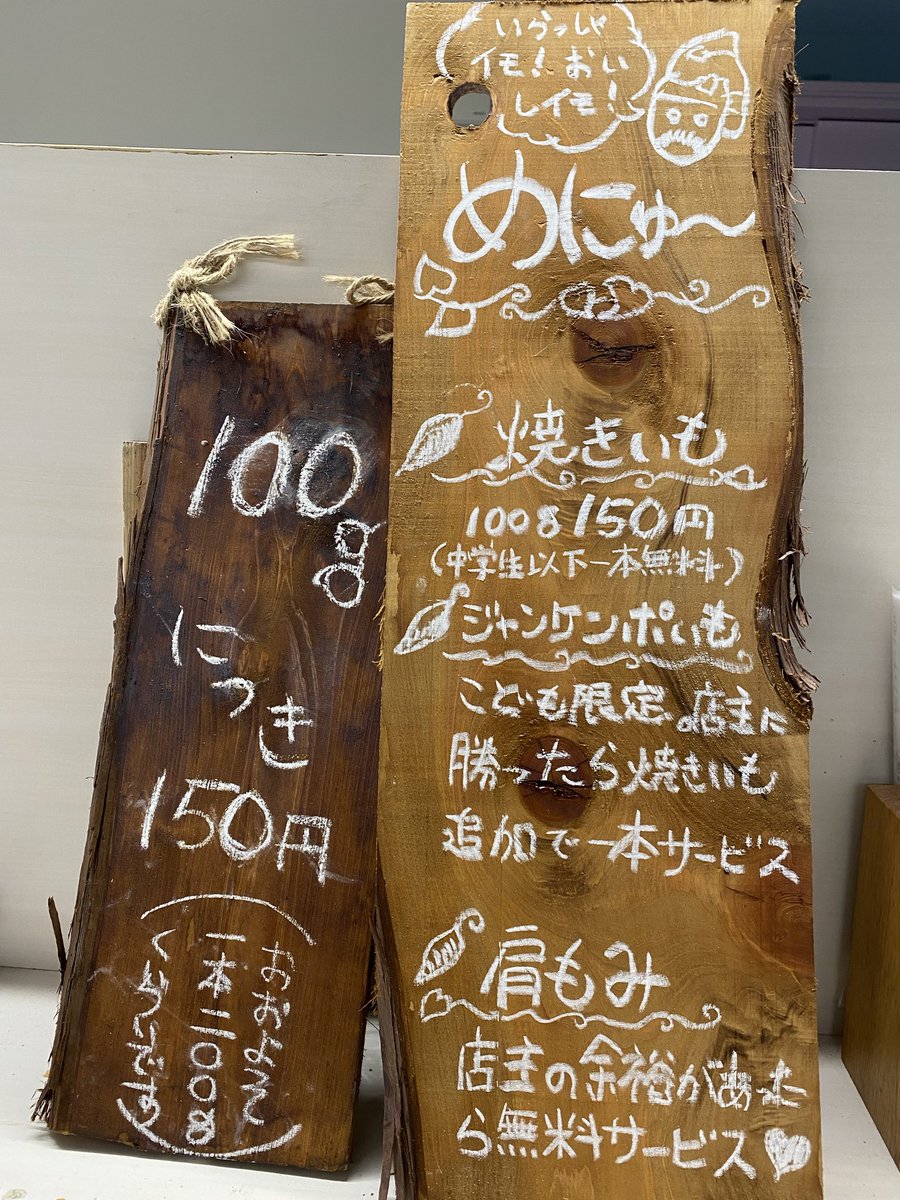 いらっしゃ
イモ！おい
しイモ！
めにゅ〜
焼きいも
100g150円
(中学生以下一本無料)
ジャンケンポいも
こども限定。店主に
勝ったら焼きいも
追加で一本サービス
肩もみ
店主の余裕があった
ら無料サービス
100g
につき
150円
(おおよそ
一本二〇〇g
くらいです)